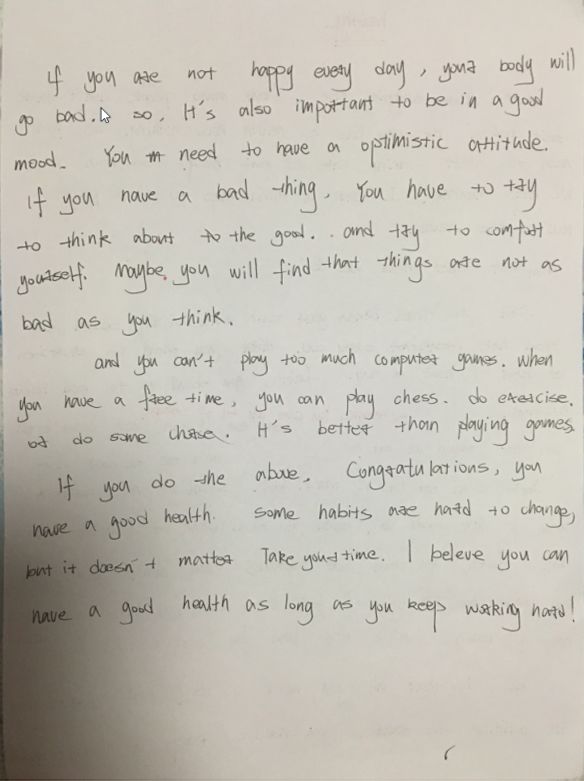 If you are not happy every day, your body will
go bad. so, It's also important to be in a good
mood. You need to have a optimistic attitude.
If you have a bad thing, You have to try
to think about to the good.. and try to comfort
yourself. Maybe you will find that things are not as
bad as you think.
and you can't play too much computer games. when
you have a free time, you can play chess. do exercise.
or do some . It's better than playing games.
If you do the above, Congratulations, you
have a good health. some habits are hard to change,
but it doesn't matter Take your time. I beleve you can
have a good health as long as you keep working hard!